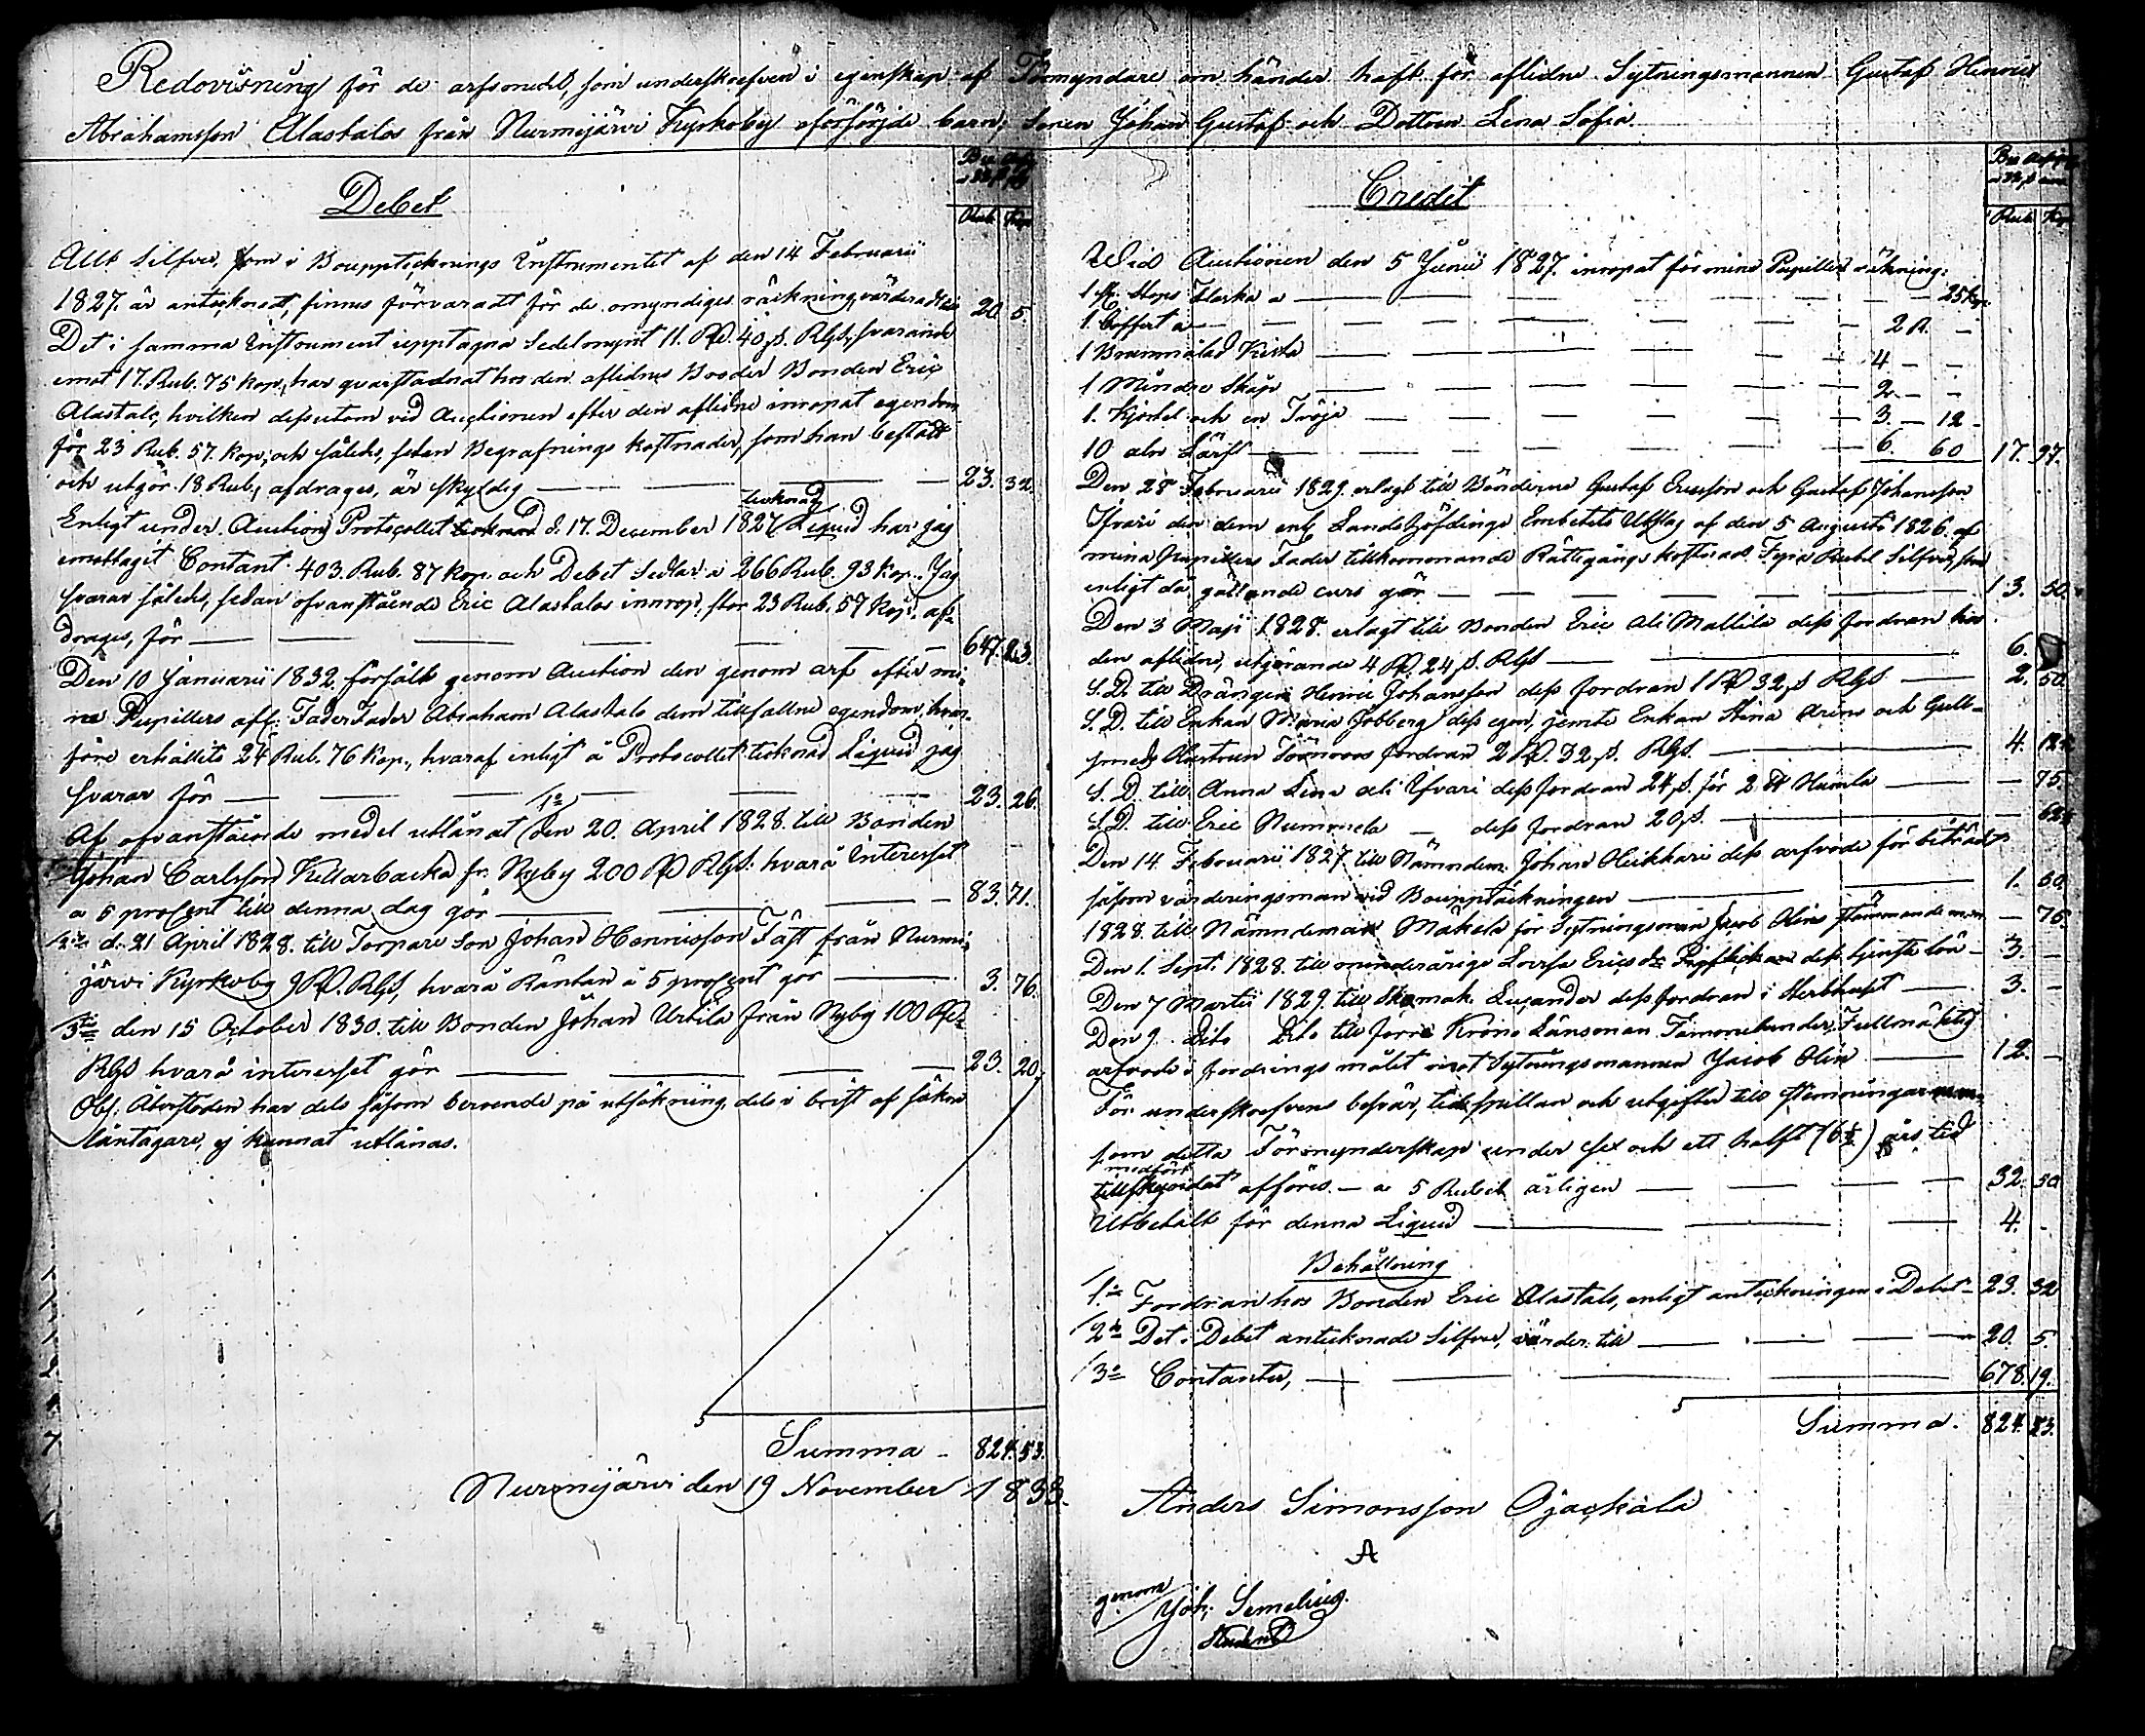 Redovisning för de arfsmedel, som underskrefven i egenskap af Förmyndare om händer haft för aflidne Sytningsmannen Gustaf Henric
Abrahamsson Alastalos från Nurmijärvi Kyrkoby efterföljde barn; Sonen Johan Gustaf och Dottren Lena Sofia.
Debet
Rub. Kop.
Allt Silfver, som i Bouppteknings Instrumentet af den 14 Februarii
1827. är antecknadt, finnes förvaradt för de omyndiges räckning, värderadt till 20. 5.
Det i samma Instrument upptagna Sedelmynt 11. RD. 40 s. RGS, svarande
emot 17. Rub. 75 kop, har quarstadnat hos den aflidnes Broder Bonden Eric
Alastalo, hvilken dessutom vid Auctionen efter den aflidne inropat egendom
för 23 Rub. 57. kop, och således, sedan Begrafnings kostnader, som han bestådt
och utgör 18 Rub, afdrages, är skyldig — 23. 32
Enligt under Auctions Protocollet d. 17. December 1827 tecknad Liquid har jag
emottagit Contant 403. Rub. 87 kop. och Debet Sedlar à 266 Rub. 93 kop. Jag
svarar således, sedan ofvanstående Eric Alastalos inrop, stor 23 Rub. 57 kop. af-
drages, för — 647. 23.
Den 10 Januarii 1832. försålt genom Auction den genom arf efter mi-
na Pupillers afl. FaderFader Abraham Alastalo dem tillfallne egendom, hvar-
före erhållits 24 Rub. 76 kop., hvaraf enligt å Protocollet tecknad Liquid jag
svarar för — 23. 26.
Af ofvanstående medel utlånat 1o den 20. April 1828. till Bonden
Johan Carlsson Kellarbacka fr. Nyby 200 RD RGS. hvarå Interesset
a 5 procent till denna dag gör — 83. 71.
2o d. 21 April 1828. till Torpare Son Johan Henricsson Fäst från Nurmi-
järvi Kyrkoby 9 RD. RGS, hvarå Räntan à 5 procent gör — 3. 76.
3o den 15 October 1830. till Bonden Johan Urtila från Nyby 100 RD
RGS hvarå interesset gör — 23. 20.
Obs. Återstoden har dels såsom beroende på utsökning, dels i brist af säkra
låntagare, ej kunnat utlånas.
Summa - 824. 53.
Nurmijärvi den 19 November 1833.
Credit
Rub. Kop
Wid Auctionen den 5 Junii 1827. inropat för mina Pupillers räkning:
1 st. Stops Flaska a — 25 kop.
1. Coffert a — 2 R. -
1 Brunmålad Kista — 4 - -
1 Mindre Skåp — 2. - -
1. Kjortel och en Tröja — 3. - 12 -
10 alnr Lärft — 6. 60 17. 97.
Den 28 Februarii 1829. erlagt till Bönderne Gustaf Ericsson och Gustaf Johansson
Yvari den dem enl. Landshöfdinge Embetets Utslag af den 5 Augusti 1826. af
mina Pupillers Fader tillkommande Rättegångs kostnad Fyra Rubel Silfver, som
enligt då gällande curs gör — 13. 50.
Den 3 Maji 1828. erlagt till Bonden Eric Ali Mallila dess fordran hos
den aflidne, utgörande 4 RD. 24 s. RGS — 6.
S. D. till Drängen Henric Johansson dess fordran 1 RD 32 s RGS — 2. 50.
S. D. till Enkan Maria Jobberg dess egen, jemte Enkan Stina Arins och Gull-
smeds Hustrun Törnroos fordran 2 RD. 32 s. RGS. — 4. 12½
S. D. till Anna Lena Ali Yvari dess fordran 24 s. för 2 ℔ Humla — 75.
S. D. till Eric Nummela — dess fordran 20 s. — 62½
Den 14 Februarii 1827. till Nämndem. Johan Heikkari dess arfvode för biträdet
såsom värderingsman vid Bouppteckningen — 1. 60.
1828. till Nämndeman Mäkelä för Sytningsman Jacob Olins stämmande — 75.
Den 1. Sept. 1828. till minderårige Lovisa Ericsdr dess tjenste lön — 3. -
Den 7 Martii 1829. till Skomak. Lusander dess fordran i Sterbhuset — 3. -
Den 9 dito dito till forre Krono Länsman Fullmäktig
arfvode i fordrings målet emot Sytningsmannen Jacob Olin — 12. -
För underskrefvens besvär, tidsspillan och utgifter till stämningar
som detta Förmynderskap under sex och ett halft (6½) års tid
medfört afföres — a 5 Rubel årligen — 32. 50
Utbetalt för denna Liquid — 4. -
Behållning
1o Fordran hos Bonden Eric Alastalo, enligt anteckningen i Debet - 23. 32
2o Det i Debet antecknade Silfver, värder. till — 20. 5.
3o Contanter, — 678. 19.
Summa. 824. 53.
Anders Simonsson Ojackala
A
genom
Joh. Semelius.
Student